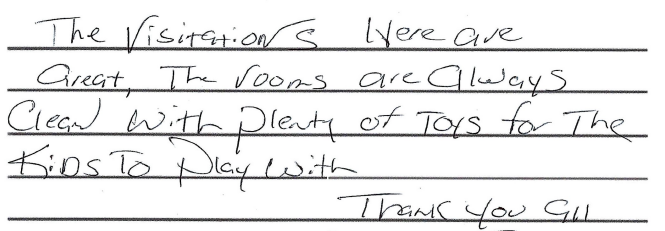 The Visitations Here are
Great, The rooms are Always
Clean With Plenty of Toys for The
Kids To Play with
Thank you All